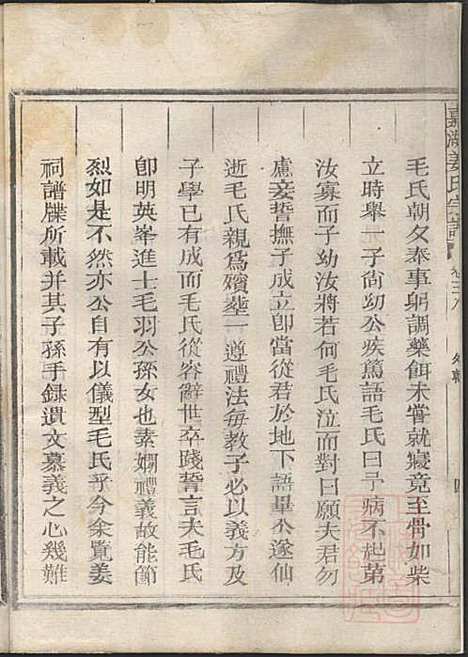 嘉湖姜氏宗譜
毛氏朝夕奉事躬調藥餌未嘗就寢竟至骨如柴
立時舉一子尚幼公疾篤語毛氏曰予病不起第
汝寡而子幼汝將若何毛氏泣而對曰願夫君勿
慮妾誓撫子成立卽當從君於地下語畢公遂仙
逝毛氏親爲殯塟一遵禮法每教子必以義方及
子學已有成而毛氏從容辭世卒踐誓言夫毛氏
卽明英峯進士毛羽公孫女也素嫻禮義故能節
烈如是不然亦公自有以儀型毛氏乎今余覽姜
祠譜牒所載并其子孫手録遺文慕義之心幾難